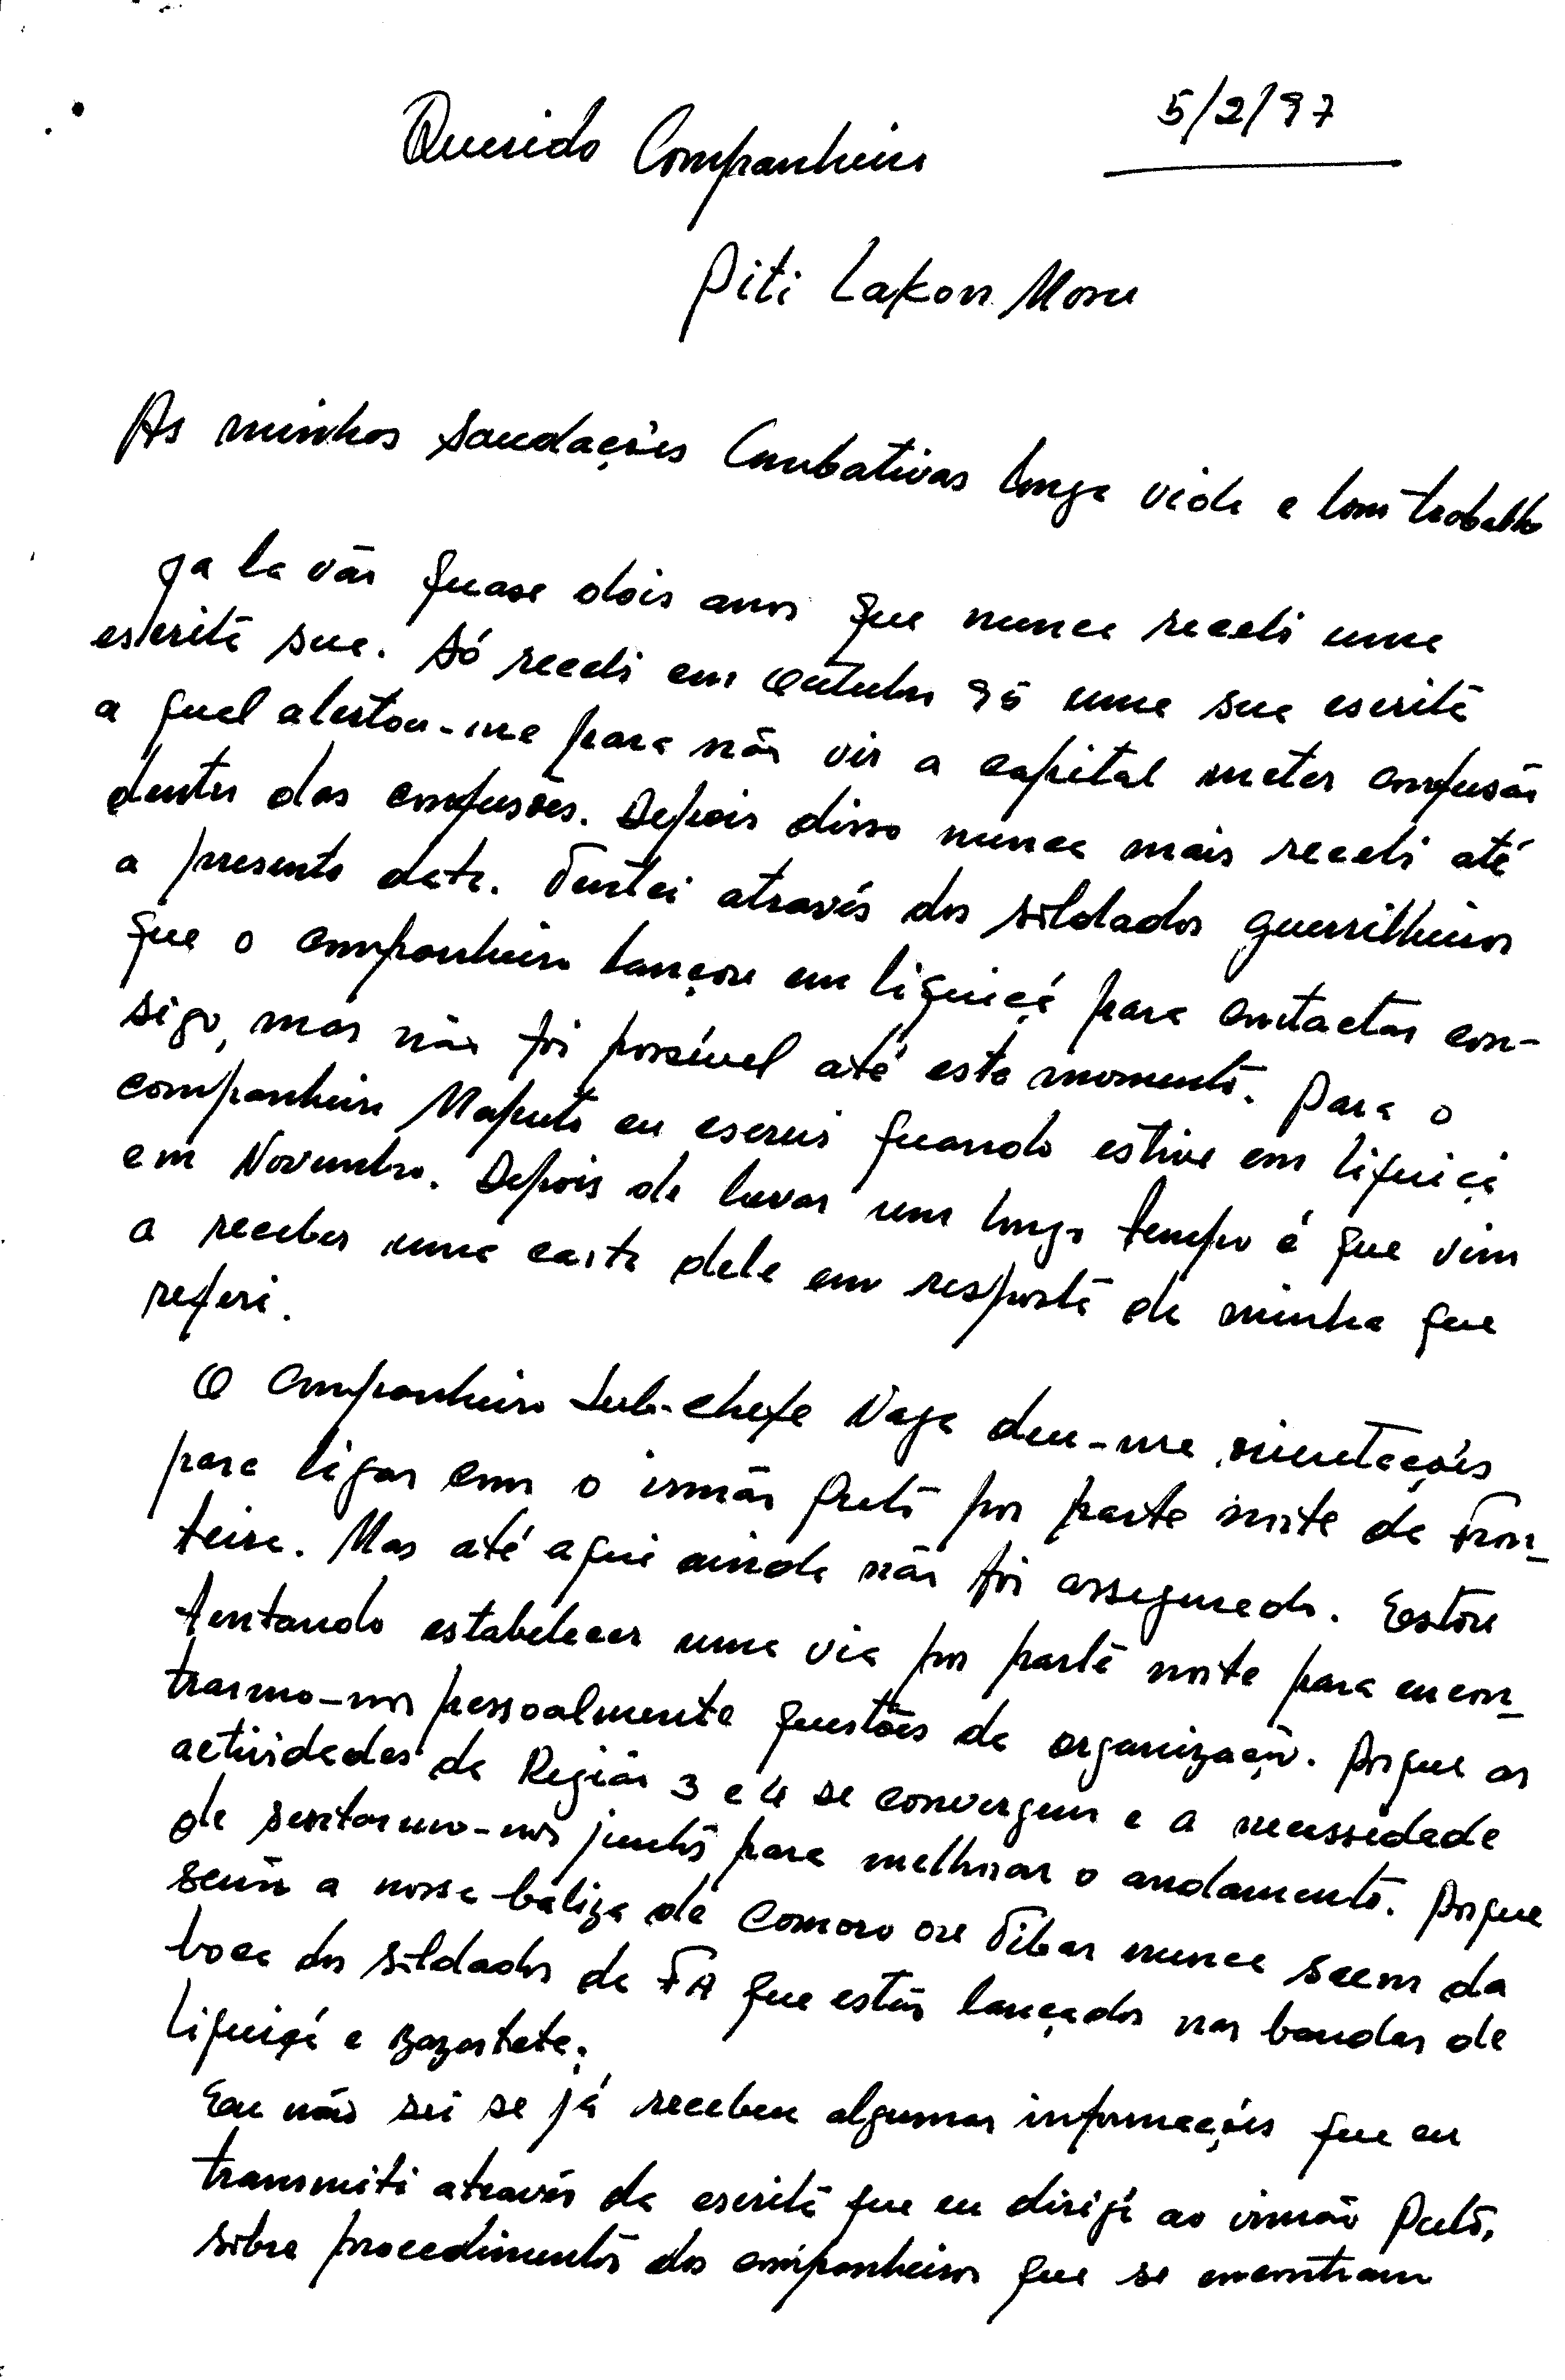 5/2/97
Querido Companheiro
Piti Lakon Monu
As minhas saudações Combativas longa vida e bom trabalho
Ja la vão quase dois anos que nunca recebi uma
escrita sua. Só recebi em Outubro 95 uma sua escrita
a qual alertou-me para não vir a capital meter confusão
dentro das confusões. Depois disso nunca mais recebi até
a presente data. Tentei através dos soldados guerrilheiros
que o companheiro lançou em Liquiçá para contactar con-
sigo, mas não foi possível até este momento. Para o
companheiro Maputo eu escrevi quando estive em Liquiçá
em Novembro. Depois de levar um longo tempo é que vim
a receber uma carta dele em resposta da minha que
referi.
O Companheiro Sub-chefe Naga deu-me orientações
para ligar com o irmão por parte norte da Fron-
teira. Mas até aqui ainda não foi assegurado. Estou
tentando estabelecer uma via por parte norte para encon-
trarmo-nos pessoalmente questões da organização. Porque as
actividades da Região 3 e 4 se convergem e a necessidade
de sentarmo-nos juntos para melhorar o andamento. Porque
senão a nossa baliza de Comoro ou Tibar nunca saem da
boca dos soldados da FA que estão lançados nas bandas de
Liquiçá e Bazartete.
Eu não sei se já recebeu algumas informações que eu
transmiti através da escrita que eu dirigi ao irmão
sobre procedimentos dos companheiros que se encontram